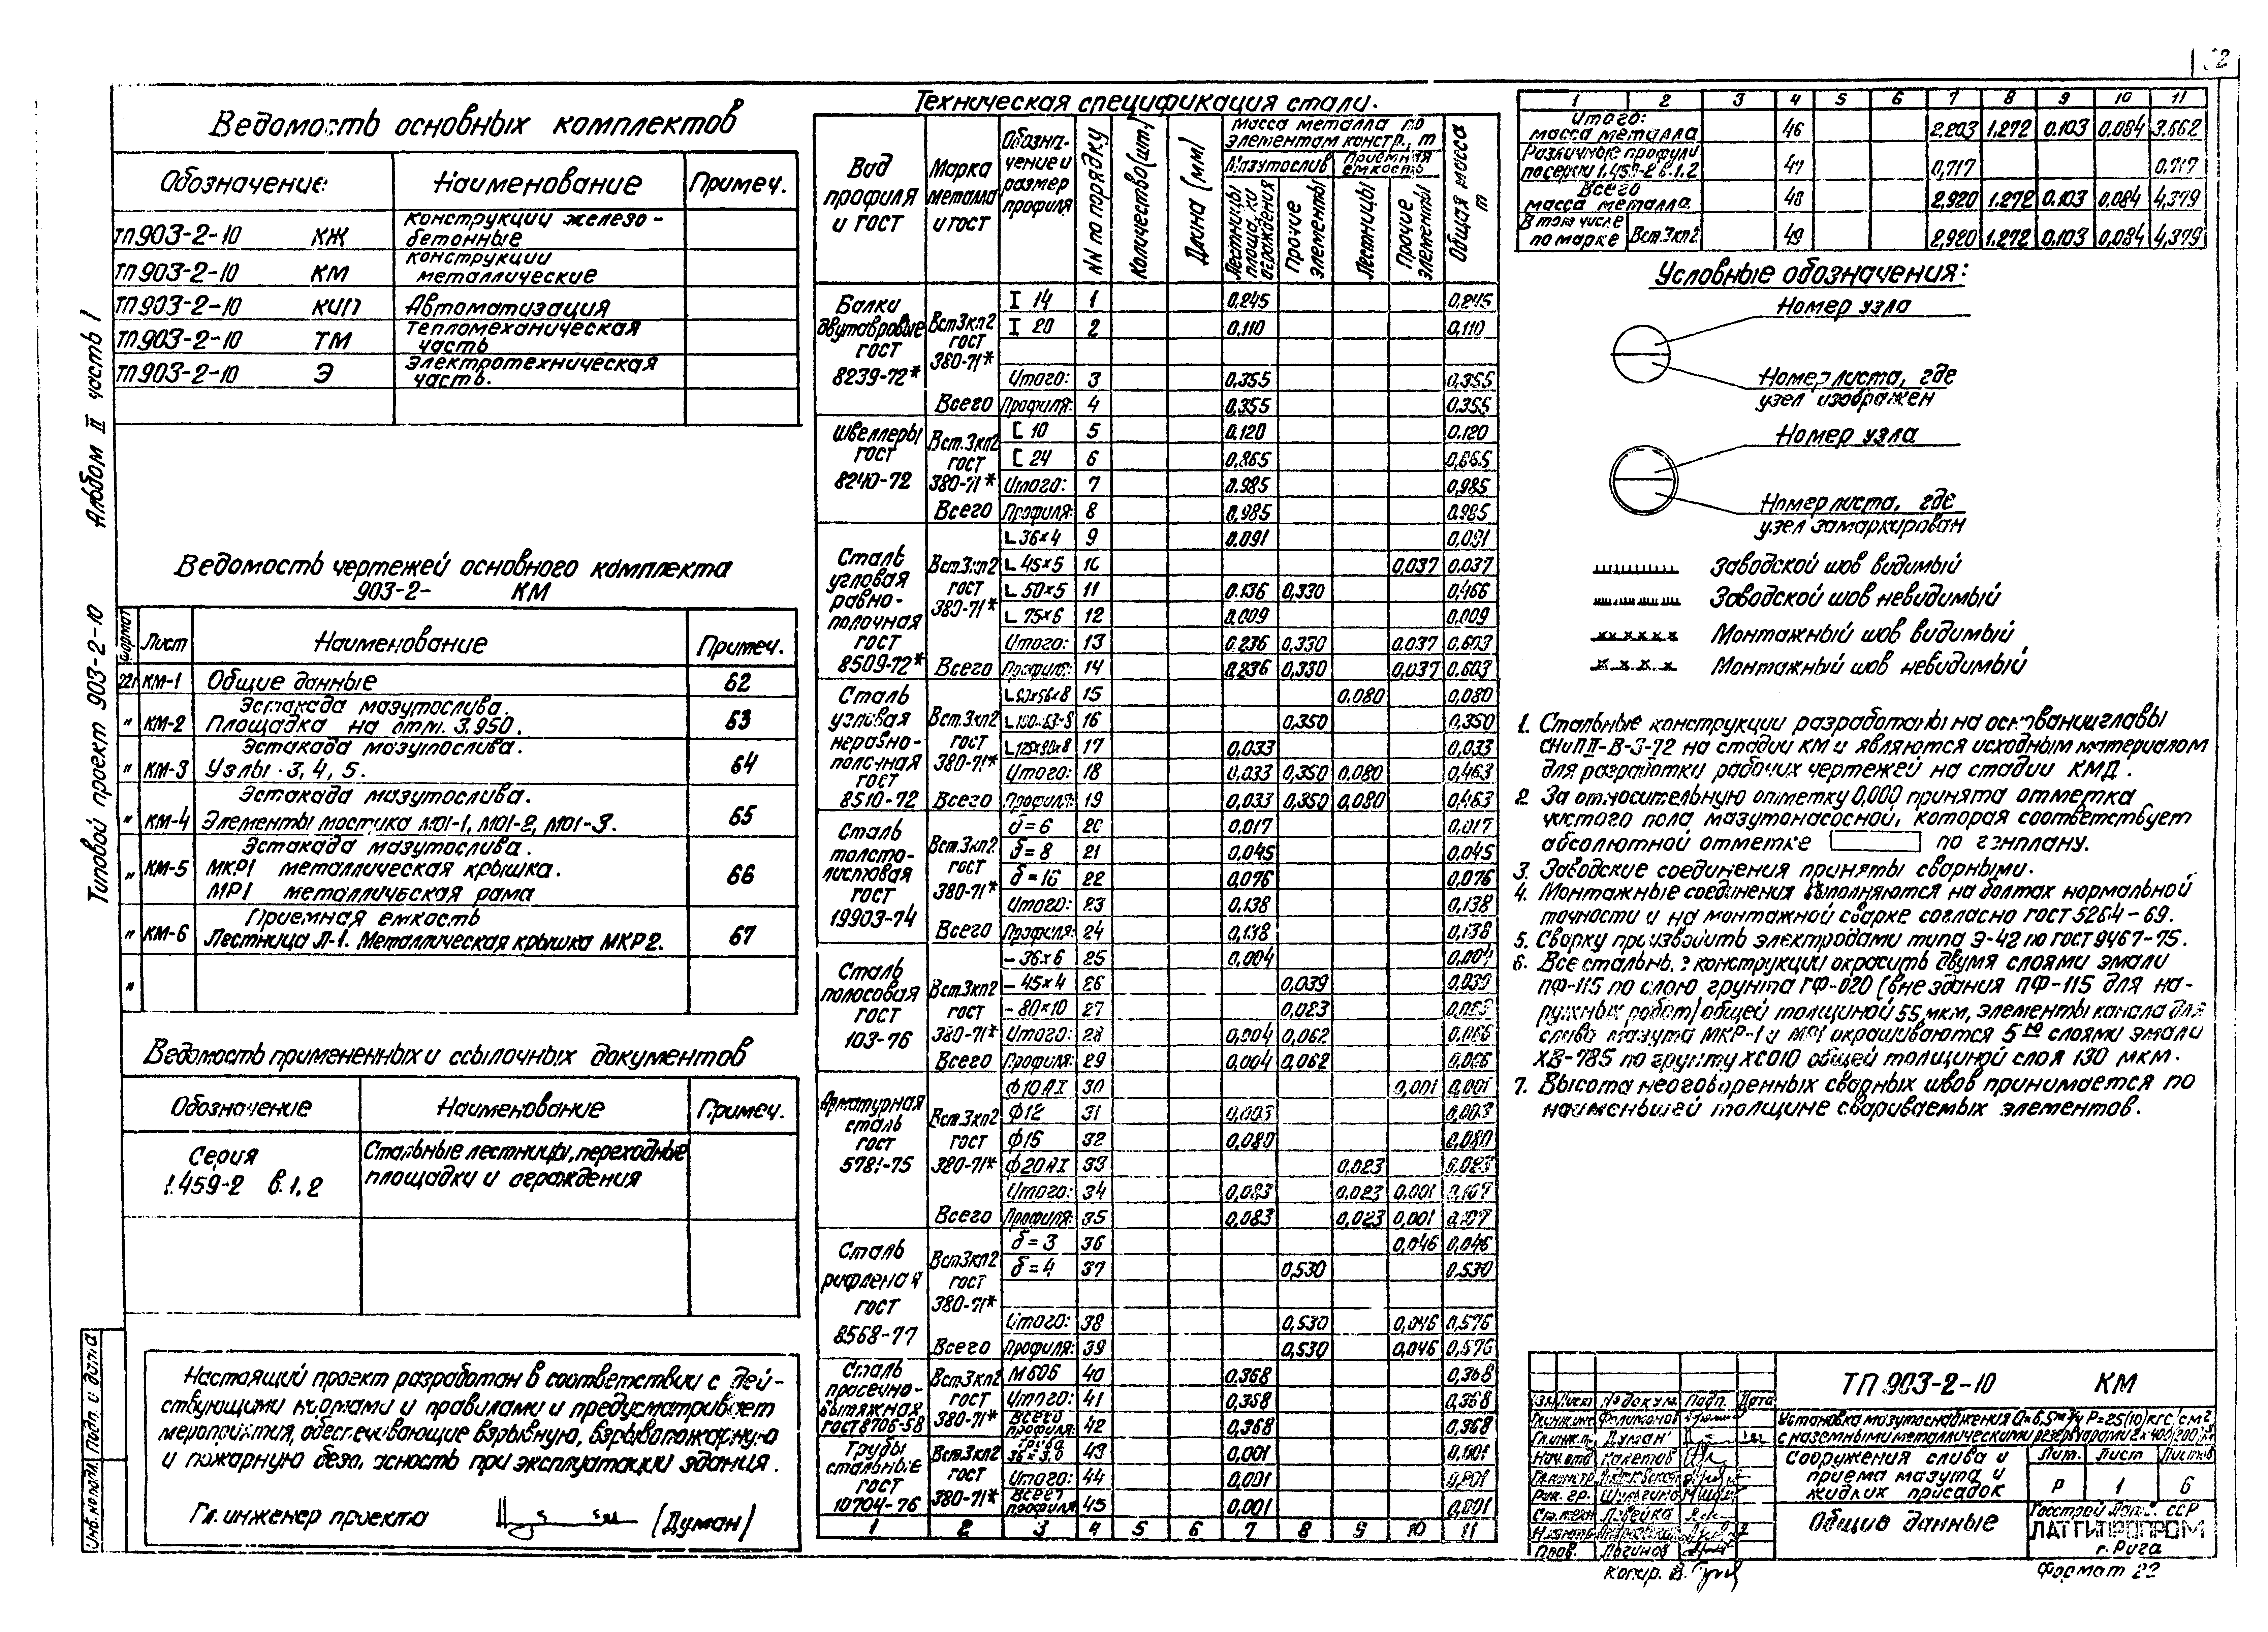 Альбом II часть 1
Типовой проект 903-2-10
Инв.№подл. Подп. и дата
Ведомость основных комплектов
Обозначение Наименование Примеч.
ТП903-2-10 КЖ конструкции железо-
бетонные
ТП903-2-10 КМ конструкции
металлические
ТП903-2-10 КИП Автоматизация
ТП903-2-10 ТМ тепломеханическая
часть
ТП903-2-10 Э электротехническая
часть.
Ведомость чертежей основного комплекта
903-2- КМ
Формат Лист Наименование Примеч.
22г КМ-1 Общие данные 62
" КМ-2 Эстакада мазутослива.
Площадка на отм. 3.950. 63
" КМ-3 Эстакада мазутослива.
Узлы 3, 4, 5. 64
" КМ-4 Эстакада мазутослива.
Элементы мостика М01-1, М01-2, М01-3. 65
" КМ-5 Эстакада мазутослива.
МКР1 металлическая крышка.
МР1 металлическая рама 66
" КМ-6 Приемная емкость
Лестница Л-1. Металлическая крышка МКР2. 67
"
Ведомость примененных и ссылочных документов
Обозначение Наименование Примеч.
Серия
1.459-2 в.1,2
Стальные лестницы, переходные
площадки и ограждения
Настоящий проект разработан в соответствии с дей-
ствующими нормами и правилами и предусматривает
мероприятия, обеспечивающие взрывную, взрывопожарную
и пожарную безопасность при эксплуатации здания.
Гл. инженер проекта (Думан)
Техническая спецификация стали.
Вид
профиля
и гост
Марка
металла
и гост
Обозна-
чение и
размер
профиля
NN по порядку
Количество (шт.)
Длина (мм)
масса металла по
элементам констр., т
Мазутослив Приемная
емкость
Лестницы
площадки
ограждения
Прочие
элементы
Лестницы
Прочие
элементы
Общая масса
т
Балки
двутавровые
гост
8239-72*
Вст3кп2
гост
380-71*
I 14 1 0.245 0.245
I 20 2 0.110 0.110
Итого: 3 0.355 0.355
Всего Профиля: 4 0.355 0.355
Швеллеры
гост
8240-72
Вст.3кп2
гост
380-71*
[ 10 5 0.120 0.120
[ 24 6 0.865 0.865
Итого: 7 0.985 0.985
Всего Профиля: 8 0.985 0.985
Сталь
угловая
равно-
полочная
гост
8509-72*
Вст.3кп2
гост
380-71*
L 36×4 9 0.091 0.091
L 45×5 10 0.037 0.037
L 50×5 11 0.136 0.330 0.466
L 75×6 12 0.009 0.009
Итого: 13 0.236 0.330 0.037 0.603
Всего Профиля: 14 0.236 0.330 0.037 0.603
Сталь
угловая
неравно-
полочная
гост
8510-72
Вст.3кп2
гост
380-71*
15 0.080 0.080
16 0.350 0.350
L125×80×8 17 0.033 0.033
Итого: 18 0.033 0.350 0.080 0.463
Всего Профиля: 19 0.033 0.350 0.080 0.463
Сталь
толсто-
листовая
гост
19903-74
Вст.3кп2
гост
380-71*
δ=6 20 0.017 0.017
δ=8 21 0.045 0.045
δ=16 22 0.076 0.076
Итого: 23 0.138 0.138
Всего Профиля: 24 0.138 0.138
Сталь
полосовая
гост
103-76
Вст.3кп2
гост
380-71*
- 36×6 25 0.004 0.004
- 45×4 26 0.039 0.039
- 80×10 27 0.023 0.023
Итого: 28 0.004 0.062 0.066
Всего Профиля: 29 0.004 0.062 0.066
Арматурная
сталь
гост
5781-75
Вст.3кп2
гост
380-71*
ф10АI 30 0.001 0.001
ф12 31 0.003 0.003
ф16 32 0.080 0.080
ф20АI 33 0.023 0.023
Итого: 34 0.083 0.023 0.001 0.107
Всего Профиля: 35 0.083 0.023 0.001 0.107
Сталь
рифленая
гост
8568-77
Вст3кп2
гост
380-71*
δ=3 36 0.046 0.046
δ=4 37 0.530 0.530
Итого: 38 0.530 0.046 0.576
Всего Профиля: 39 0.530 0.046 0.576
Сталь
просечно-
вытяжная
гост8706-58
Вст.3кп2
гост
380-71*
М606 40 0.368 0.368
Итого: 41 0.368 0.368
Всего
профиля: 42 0.368 0.368
Трубы
стальные
гост
10704-76
Вст.3кп2
гост
380-71*
43 0.001 0.001
Итого: 44 0.001 0.001
Всего
профиля 45 0.001 0.001
1 2 3 4 5 6 7 8 9 10 11
1 2 3 4 5 6 7 8 9 10 11
Итого:
масса металла 46 2.203 1.272 0.103 0.084 3.662
Различные профили
по серии 1.459-2 в.1.2 47 0.717 0.717
Всего
масса металла. 48 2.920 1.272 0.103 0.084 4.379
В том числе
по марке Вст.3кп2 49 2.920 1.272 0.103 0.084 4.379
Условные обозначения:
Номер узла
Номер листа, где
узел изображен
Номер узла
Номер листа, где
узел замаркирован
Заводской шов видимый
Заводской шов невидимый
Монтажный шов видимый
Монтажный шов невидимый
1. Стальные конструкции разработаны на основании главы
СНиП II-В-3-72 на стадии КМ и являются исходным материалом
для разработки рабочих чертежей на стадии КМД.
2. За относительную отметку 0,000 принята отметка
чистого пола мазутонасосной, которая соответствует
абсолютной отметке по генплану.
3. Заводские соединения приняты сварными.
4. Монтажные соединения выполняются на болтах нормальной
точности и на монтажной сварке согласно гост 5264-69.
5. Сварку производить электродами типа Э-42 по гост 9467-75.
6. Все стальные конструкции окрасить двумя слоями эмали
ПФ-115 по слою грунта ГФ-020 (вне здания ПФ-115 для на-
ружных работ) общей толщиной 55 мкм, элементы канала для
слива мазута МКР-1 и МР1 окрашиваются 5ю слоями эмали
ХВ-785 по грунту ХС010 общей толщиной слоя 130 мкм.
7. Высота неоговоренных сварных швов принимается по
наименьшей толщине свариваемых элементов.
ТП 903-2-10 КМ
Изм. Лист № докум. Подп. Дата
Гл.инж.пр. Думан
Нач.отд.
Рук. гр.
Пров. Логинов
Установка мазутоснабжения Q=6.5м³/ч Р=25(10)кгс/см²
с наземными металлическими резервуарами 2×400(200)м³
Сооружения слива и
приема мазута и
жидких присадок
Лит. Лист Листов
Р 1 6
Общие данные
Госстрой Латв. ССР
ЛАТГИПРОПРОМ
г. Рига
Копир. Формат 22